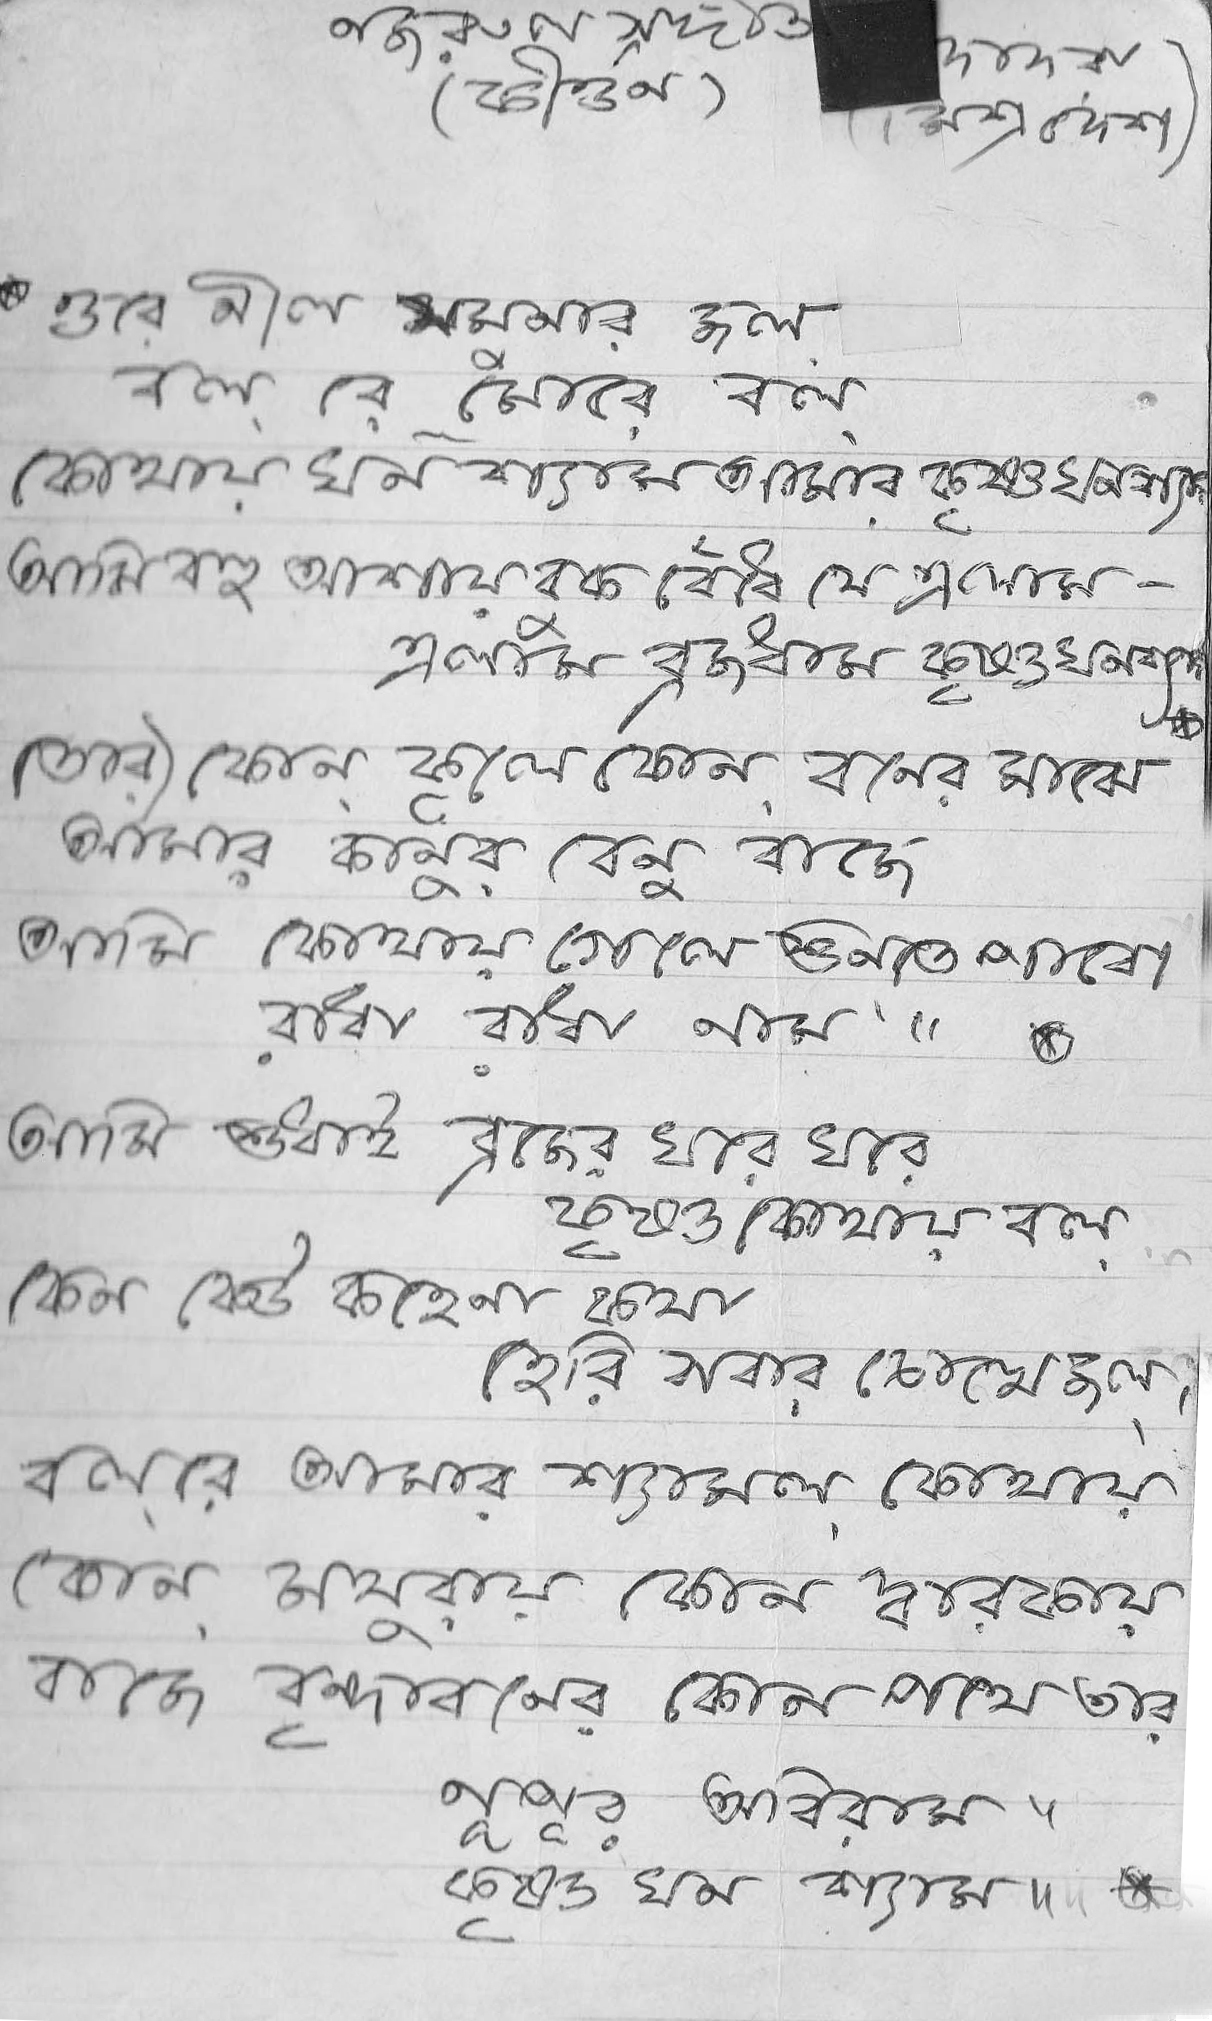 নজরুল সঙ্গীত দাদরা
(কীর্ত্তন) (মিশ্র দেশ)
ওরে নীল যমুনার জল্
বল্ রে মোরে বল্
কোথায় ঘন শ্যাম আমার কৃষ্ণ ঘনশ্যাম
আমি বহু আশায় বুক বেঁধে যে এলাম -
এলাম ব্রজধাম কৃষ্ণ ঘনশ্যাম
(তোর) কোন্ কূলে কোন্ বনের মাঝে
আমার কানুর বেনু বাজে
আমি কোথায় গেলে শুনতে পাবো
রাধা রাধা নাম ॥
আমি শুধাই ব্রজের ঘরে ঘরে
কৃষ্ণ কোথায় বল্
কেন কেউ কহেনা কথা
হেরি সবার চোখে জল্।
বল্ রে আমার শ্যামল্ কোথায়
কোন্ মথুরায় কোন দ্বারকায়
বাজে বৃন্দাবনের কোন পথে তার
নূপূর অবিরাম ॥
কৃষ্ণ ঘন শ্যাম ॥॥